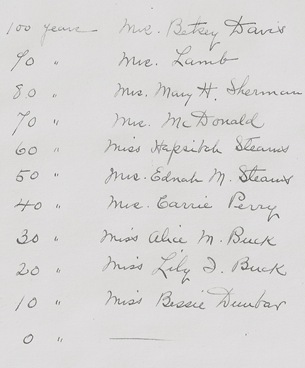 100 years - Mrs. Betsey Davis
90 " Mrs. Lamb
80 " Mrs. Mary H. Sherman
70 " Mrs. McDonald
60 " Miss Hapsibah Stearns
50 " Mrs. Ednah M. Stearns
40 " Mrs. Carrie Perry
30 " Miss Alice M. Buck
20 " Miss Lily J. Buck
10 " Miss Bessie Dunbar
0 " ———